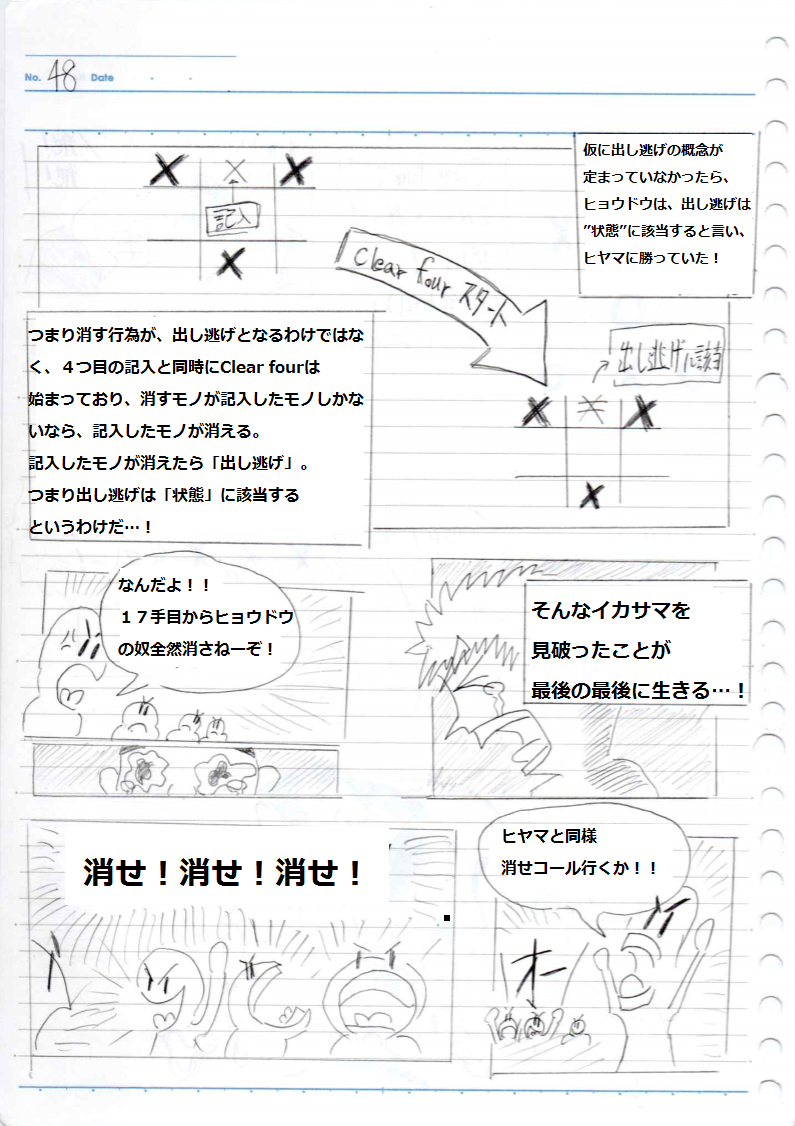 No. 48 Date
仮に出し逃げの概念が
定まっていなかったら、
ヒョウドウは、出し逃げは
”状態”に該当すると言い、
ヒヤマに勝っていた！
記入
Clear four スタート
出し逃げに該当
つまり消す行為が、出し逃げとなるわけではな
く、４つ目の記入と同時にClear fourは
始まっており、消すモノが記入したモノしかな
いなら、記入したモノが消える。
記入したモノが消えたら「出し逃げ」。
つまり出し逃げは「状態」に該当する
というわけだ…！
そんなイカサマを
見破ったことが
最後の最後に生きる…！
なんだよ！！
１７手目からヒョウドウ
の奴全然消さねーぞ！
ヒヤマと同様
消せコール行くか！！
オー
消せ！消せ！消せ！